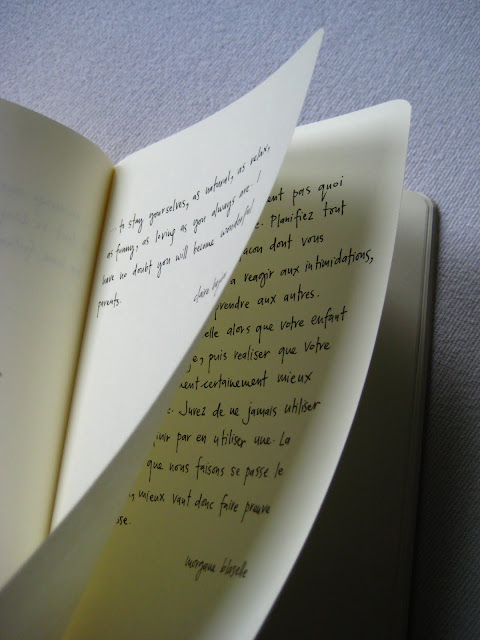 - to stay yourselves, as natural, as relax,
as funny, as loving as you always are. I
have no doubt you will become wonderful
parents.
clare
ent pas quoi
e. Planifiez tout
acon dont vous
a reagir aux intimidations,
prendre aux autres.
elle alors que votre enfant
je, puis realiser que votre
ent certainement mieux
. Jurez de ne jamais utiliser
nir par en utiliser une. La
que nous faisons se passe le
, mieux vaut donc faire preuve
se.
morgane blaselle